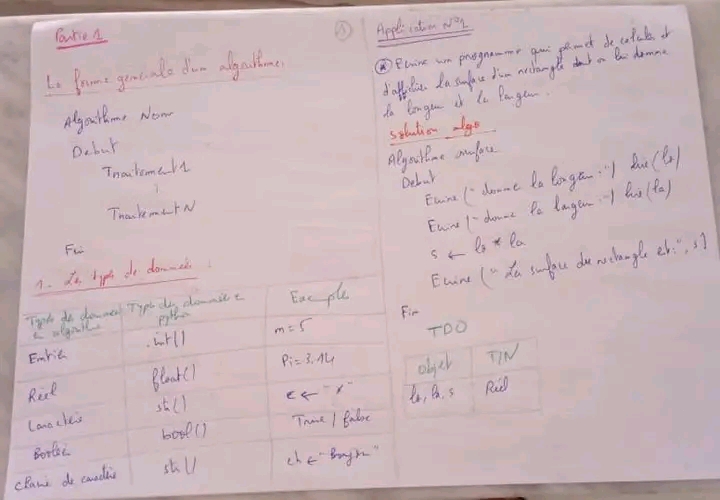 Partie 1
La forme générale d'un algorithme :
Algorithme Nom
Debut
Traitement 1
⋮
Traitement N
Fin
1. Les types de données :
Types de données en algorithme | Types des données en python | Exemple
Entier | int() | m = 5
Réel | float() | Pi = 3.14
Caractère | str() | c ← "x"
Booléen | bool() | True / false
chaine de caractère | str() | ch ← "Bonjour"
Application N°1
Ecrire un programme qui permet de calculer et
d'afficher la surface d'un rectangle dont on lui donne
la longeur et le largeur.
Solution algo
Algorithme surface
Debut
Ecrire ("donne la longeur :") lire (lo)
Ecrire ("donne la largeur :") lire (la)
s ← lo * la
Ecrire ("La surface du rectangle est :", s)
Fin
TDO
objet | T/N
lo, la, s | Réel